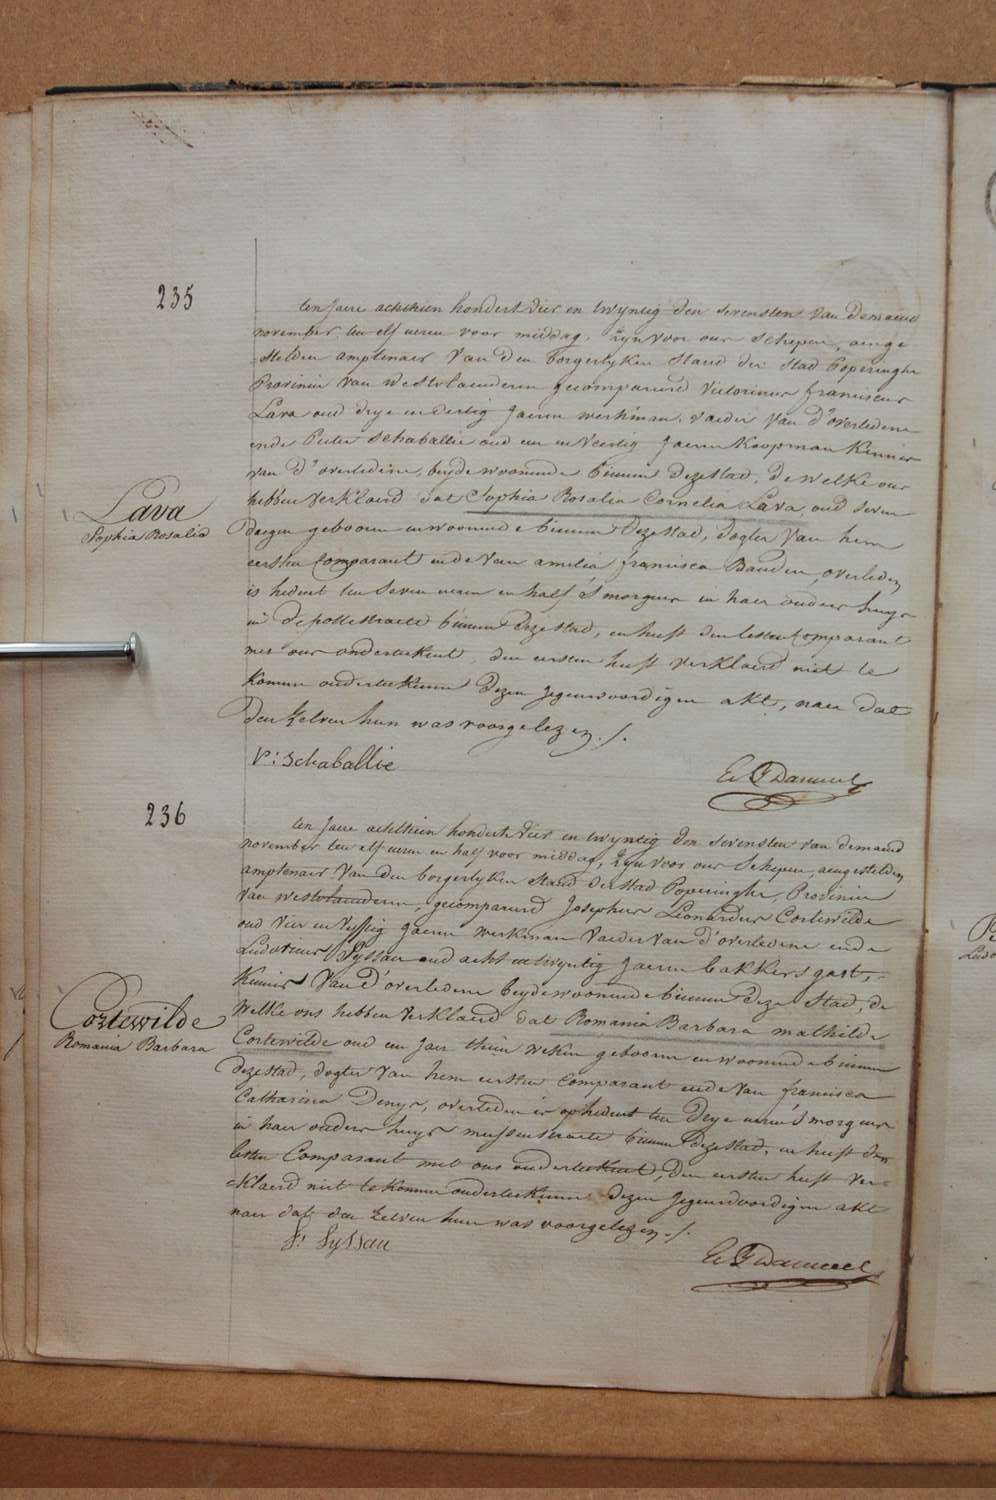 235
ten Jaere achthien hondert vier en twyntig den sevensten van de maend
november ten elf ueren voor middag, Zyn voor ons schepen, aenge
=stelden amptenaer van den borgerlyken stand der stad Poperinghe
Provincie van Westvlaenderen gecompareerd Victorinus franciscus
Lava oud drye en dertig Jaeren werkman, vaeder van d'overledene
ende Pieter Schaballie oud een en veertig Jaeren Koopman Kennis
van d'overledene, beyde woonende binnen deze stad, de welke ons
hebben verklaerd dat Sophia Rosalia Cornelia Lava oud seven
Lava
Sophia Rosalia
daegen geboren en woonende binnen deze stad, dogter van hem
eersten Comparant ende van amelia francisca Bauden, overleden
is hedent ten seven ueren en half s'morgens in haer ouders huys
in de pottestraete binnen deze stad, en heeft den lesten Comparant
met ons onderteekent, den eersten heeft verklaerd niet te
konnen onderteekenen dezen jegenwoordigen akt, naer dat
den zelven hun was voorgelezen ./.
P: Schaballie
236
ten Jaere achthien hondert vier en twyntig den sevensten van de maend
november ten elf ueren en half voor middag, Zyn voor ons Schepen, aengestelden
amptenaer van den borgerlyken stand der stad Poperinghe, Provincie
van Westvlaenderen, gecompareerd Josephus Leonardus Cortewilde
oud vier en vyftig Jaeren werkman vaeder van d'overledene ende
Ludovicus Syssau oud acht en twyntig Jaeren bakkers gast,=
Kennis van d'overledene beyde woonende binnen deze stad, de
Welke ons hebben verklaerd dat Romania Barbara mathilde
Cortewilde
Romania Barbara
Cortewilde oud een Jaer thien weken geboren en woonende binnen
deze stad, dogter van hem eersten Comparant ende van francisca
Catharina Denys, overleden is op hedent ten drye ueren s'morgens
in haer ouders huys messenstraete binnen deze stad, en heeft den
lesten Comparant met ons onderteekent, den eersten heeft ver=
=klaerd niet te konnen onderteekenen dezen jegenwoordigen akt
naer dat den zelven hun was voorgelezen ./.
L: Syssau